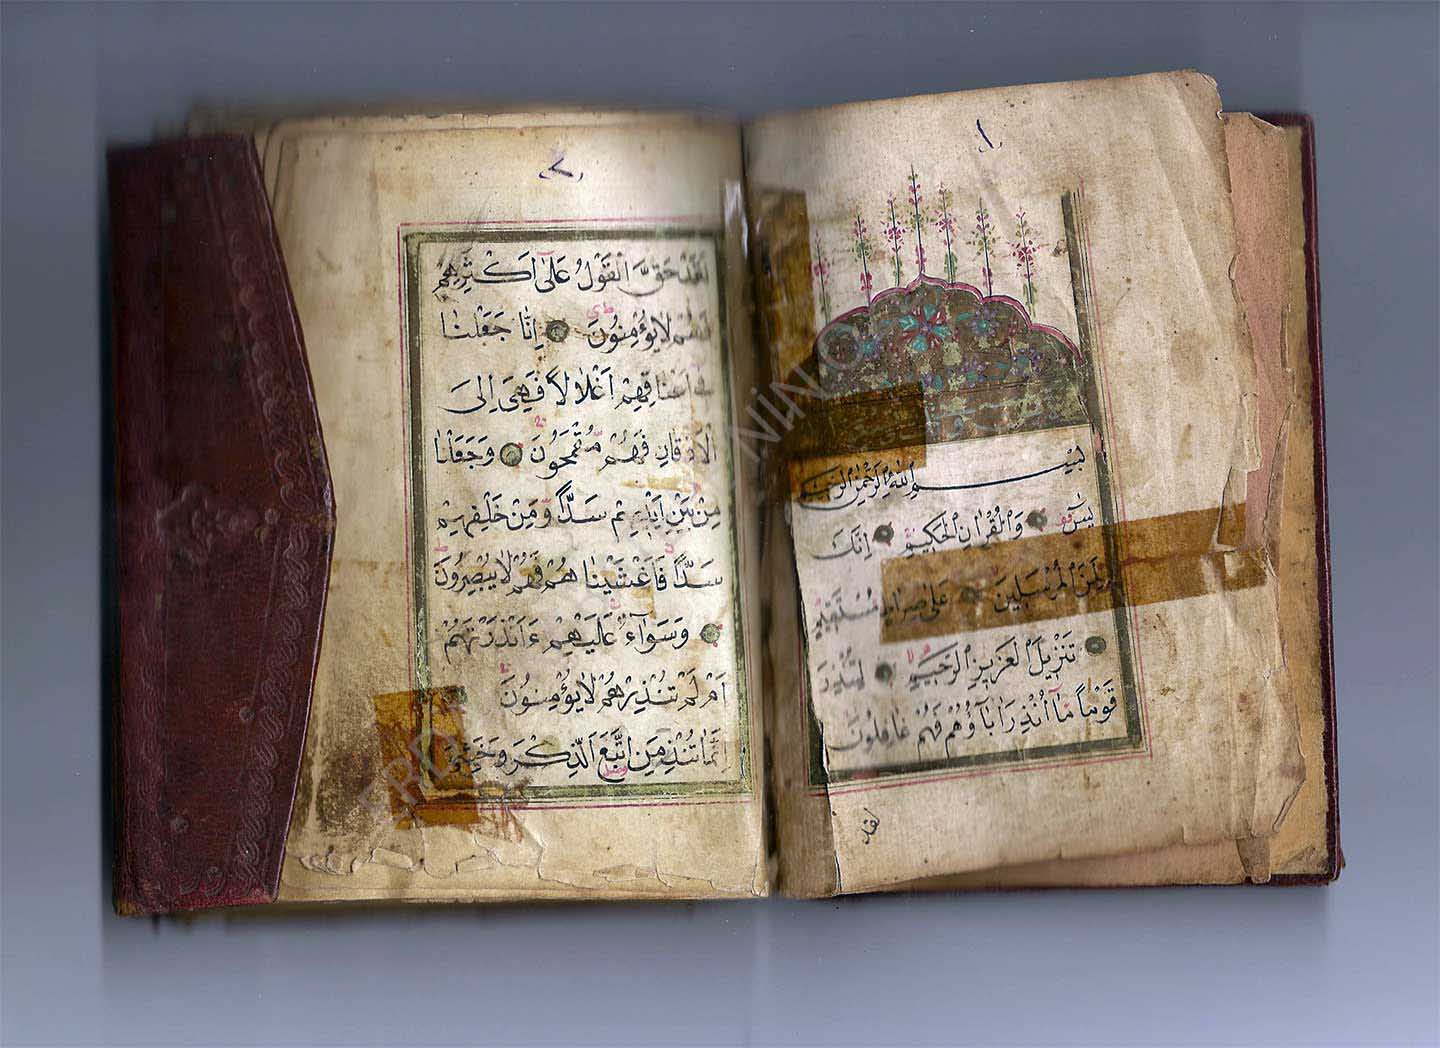 ١
بِسْمِ اللّٰهِ الرَّحْمٰنِ الرَّحِيمِ
يٰسٓ وَالْقُرْاٰنِ الْحَكِيمِ اِنَّكَ
لَمِنَ الْمُرْسَلِينَ عَلٰى صِرَاطٍ مُسْتَقِيمٍ
تَنْزِيلَ الْعَزِيزِ الرَّحِيمِ لِتُنْذِرَ
قَوْمًا مَٓا اُنْذِرَ اٰبَٓاؤُهُمْ فَهُمْ غَافِلُونَ
لقد
٢
لَقَدْ حَقَّ الْقَوْلُ عَلٰٓى اَكْثَرِهِمْ
فَهُمْ لَا يُؤْمِنُونَ اِنَّا جَعَلْنَا
فِٓى اَعْنَاقِهِمْ اَغْلَالًا فَهِىَ اِلَى
الْاَذْقَانِ فَهُمْ مُقْمَحُونَ وَجَعَلْنَا
مِنْ بَيْنِ اَيْدِيهِمْ سَدًّا وَمِنْ خَلْفِهِمْ
سَدًّا فَاَغْشَيْنَاهُمْ فَهُمْ لَا يُبْصِرُونَ
وَسَوَٓاءٌ عَلَيْهِمْ ءَاَنْذَرْتَهُمْ
اَمْ لَمْ تُنْذِرْهُمْ لَا يُؤْمِنُونَ
اِنَّمَا تُنْذِرُ مَنِ اتَّبَعَ الذِّكْرَ وَخَشِىَ